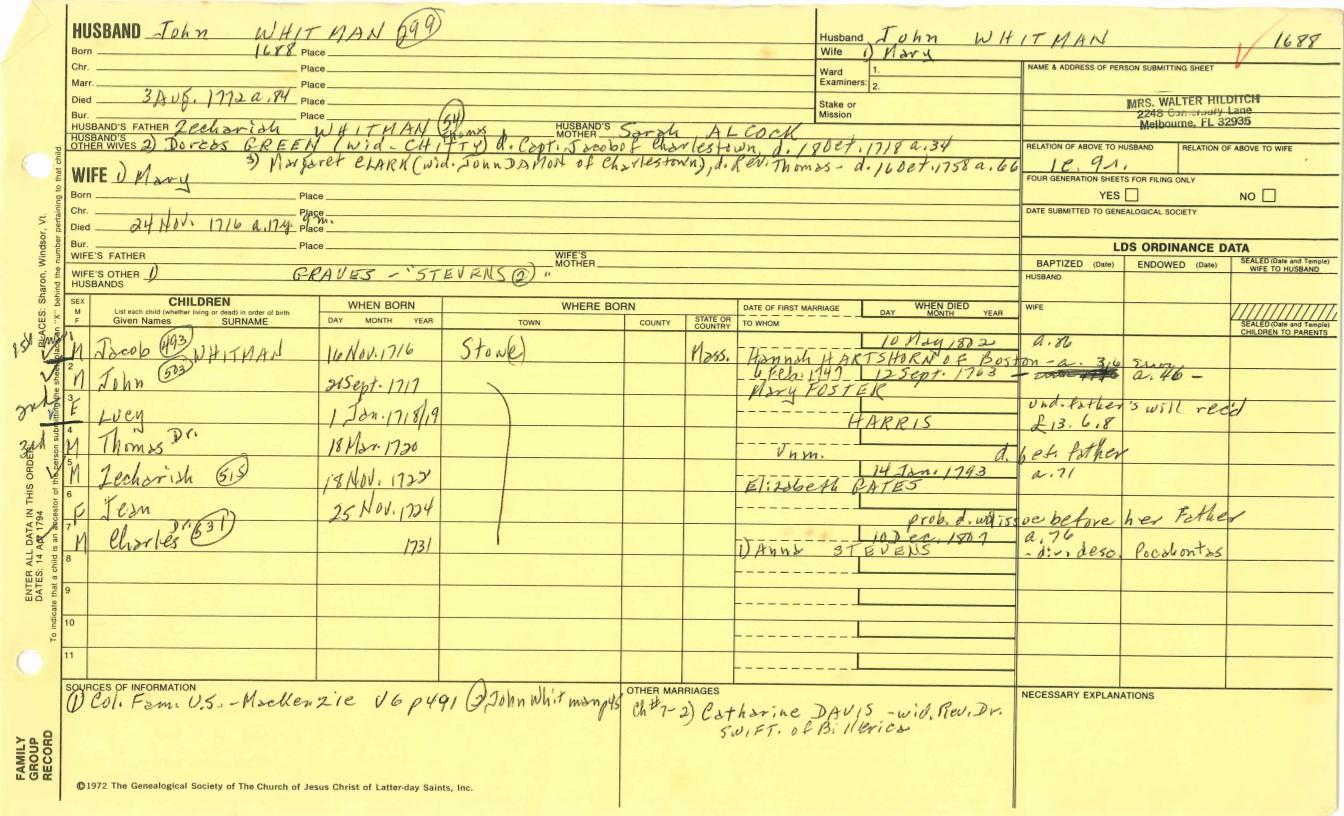 HUSBAND John WHITMAN 299
Born 1688 Place
Chr. Place
Marr. Place
Died 3 Aug. 1772 a. 84 Place
Bur. Place
HUSBAND'S FATHER Zechariah WHITMAN 54 HUSBAND'S MOTHER Sarah ALCOCK
HUSBAND'S OTHER WIVES 2) Dorcas GREEN (wid. CHITTY) d. Capt. Jacob of Charlestown, d. 18 Oct. 1718 a. 34
3) Margaret CLARK (wid. John DAMON of Charlestown), d. Rev. Thomas - d. 16 Oct. 1758 a. 66
Husband John WHITMAN 1688
Wife 1) Mary
Ward Examiners: 1.
2.
Stake or Mission
NAME & ADDRESS OF PERSON SUBMITTING SHEET
MRS. WALTER HILDITCH
2248 Canterbury Lane
Melbourne, FL 32935
RELATION OF ABOVE TO HUSBAND RELATION OF ABOVE TO WIFE
FOUR GENERATION SHEETS FOR FILING ONLY
YES NO
DATE SUBMITTED TO GENEALOGICAL SOCIETY
WIFE 1) Mary
Born Place
Chr. Place
Died 24 Nov. 1716 a. 17y. 9m. Place
Bur. Place
WIFE'S FATHER WIFE'S MOTHER
WIFE'S OTHER HUSBANDS 1) GRAVES - "STEVENS ② "
LDS ORDINANCE DATA
BAPTIZED (Date) ENDOWED (Date) SEALED (Date and Temple) WIFE TO HUSBAND
HUSBAND
WIFE
SEALED (Date and Temple) CHILDREN TO PARENTS
SEX M F CHILDREN WHEN BORN WHERE BORN DATE OF FIRST MARRIAGE WHEN DIED
List each child (whether living or dead) in order of birth
Given Names SURNAME DAY MONTH YEAR TOWN COUNTY STATE OR COUNTRY TO WHOM DAY MONTH YEAR
1 M Jacob 493 WHITMAN 16 Nov. 1716 Stow(e) Mass. 10 May 1802 a. 86
Hannah HARTSHORN of Boston
2 M John 503 21 Sept. 1717 6 Feb. 1747 12 Sept. 1763 a. 46 -
Mary FOSTER
3 F Lucy 1 Jan. 1718/19 und. father's will rec'd
HARRIS £13.6.8
4 M Thomas Dr. 18 Mar. 1720
Unm. d. bef. father
5 M Zechariah 515 18 Nov. 1722 14 Jan. 1793 a. 71
Elizabeth GATES
6 F Jean 25 Nov. 1724
prob. d. wit issue before her Father
7 M Charles Dr. 531 1731 10 Dec. 1807 a. 76
1) Anna STEVENS - div. desc. Pocahontas
8
9
10
11
SOURCES OF INFORMATION
① Col. Fam. U.S. - MacKenzie V6 p491 ② John Whitman p45
OTHER MARRIAGES
Ch #7-2) Catharine DAVIS - wid. Rev. Dr.
SWIFT. of Billerica
NECESSARY EXPLANATIONS
©1972 The Genealogical Society of The Church of Jesus Christ of Latter-day Saints, Inc.
FAMILY GROUP RECORD
ENTER ALL DATA IN THIS ORDER
PLACES: Sharon, Windsor, Vt.
DATES: 14 Apr 1794
To indicate that a child is an ancestor of the person submitting the sheet, place an "X" behind the number pertaining to that child